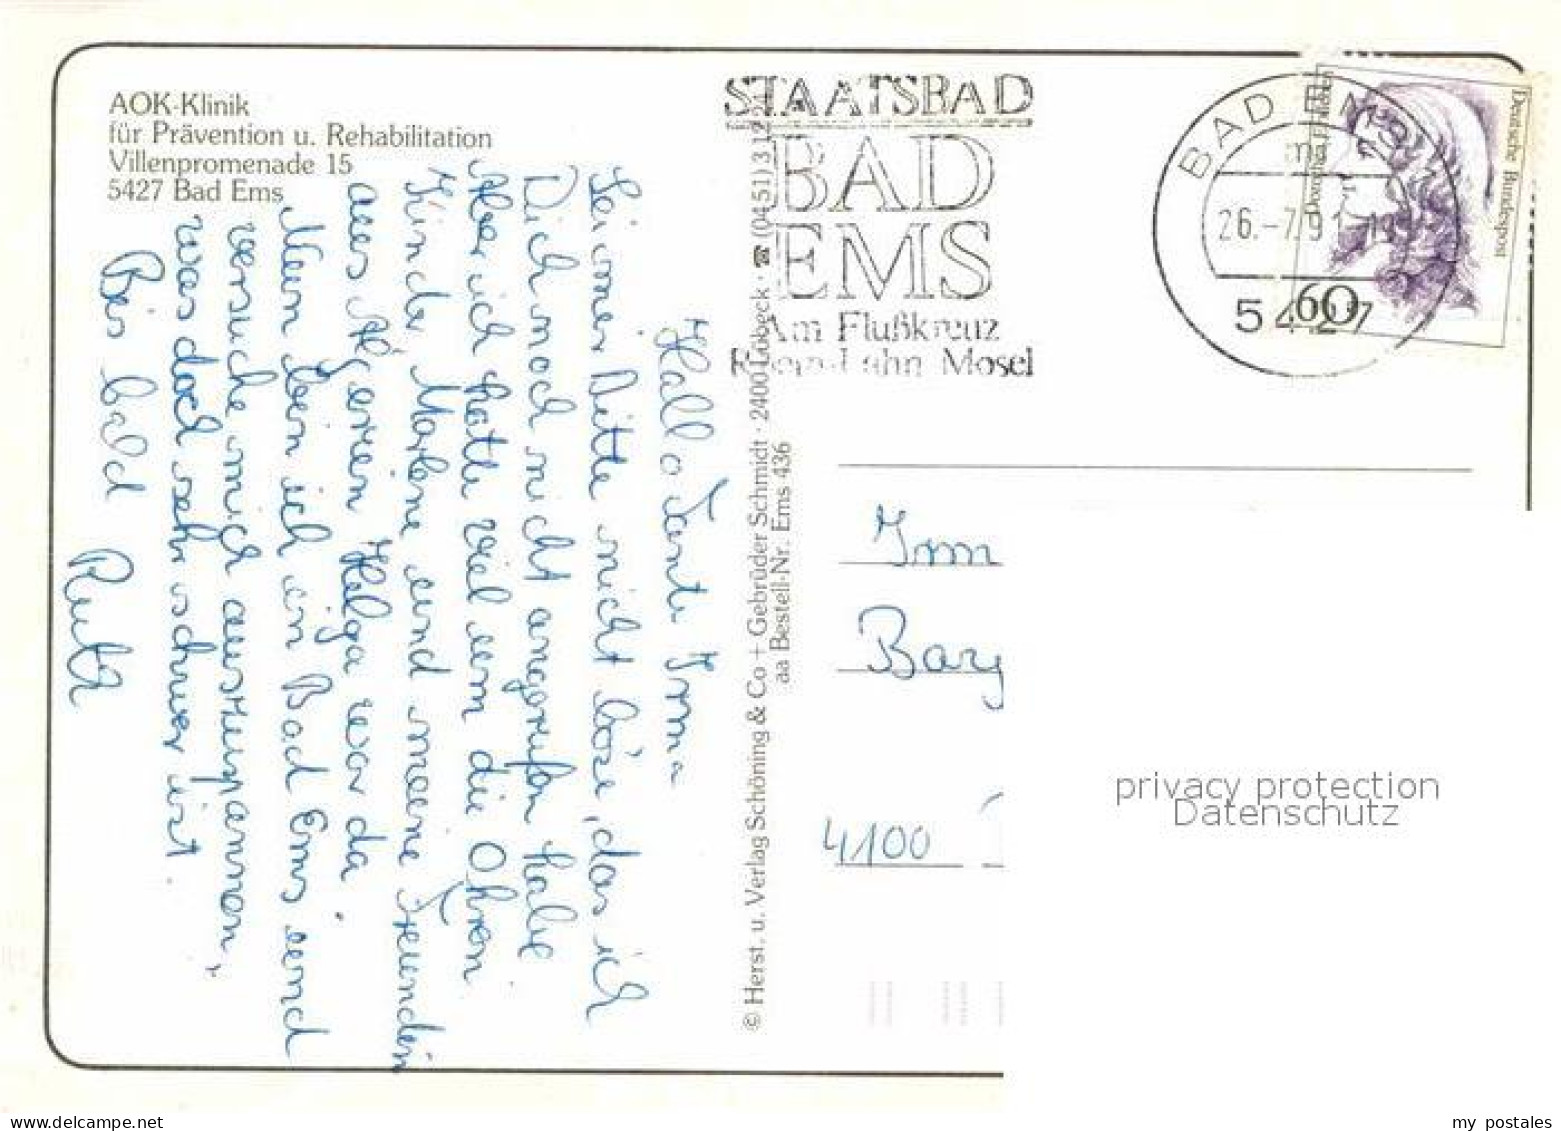 AOK-Klinik
für Prävention u. Rehabilitation
Villenpromenade 15
5427 Bad Ems
Hallo Tante Irma
Sei mir bitte nicht böse, das ich
Dich noch nicht angerufen habe
Aber ich hatte viel um die Ohren
Kinder, Marlene und meine Freundin
aus Algerien Helga war da.
Nun bin ich in Bad Ems und
versuche mich auszuspannen,
was doch sehr schwer ist.
Bis bald
Ruth
© Herst. u. Verlag Schöning & Co + Gebrüder Schmidt · 2400 Lübeck · ☎ (0451) 3 12
aa Bestell-Nr. Ems 436
STAATSBAD
BAD
EMS
Am Flußkreuz
Rhein-Lahn Mosel
BAD EMS
26.-7.91
5427
Deutsche Bundespost
60
Irm
Barg
4100
privacy protection
Datenschutz
my postales